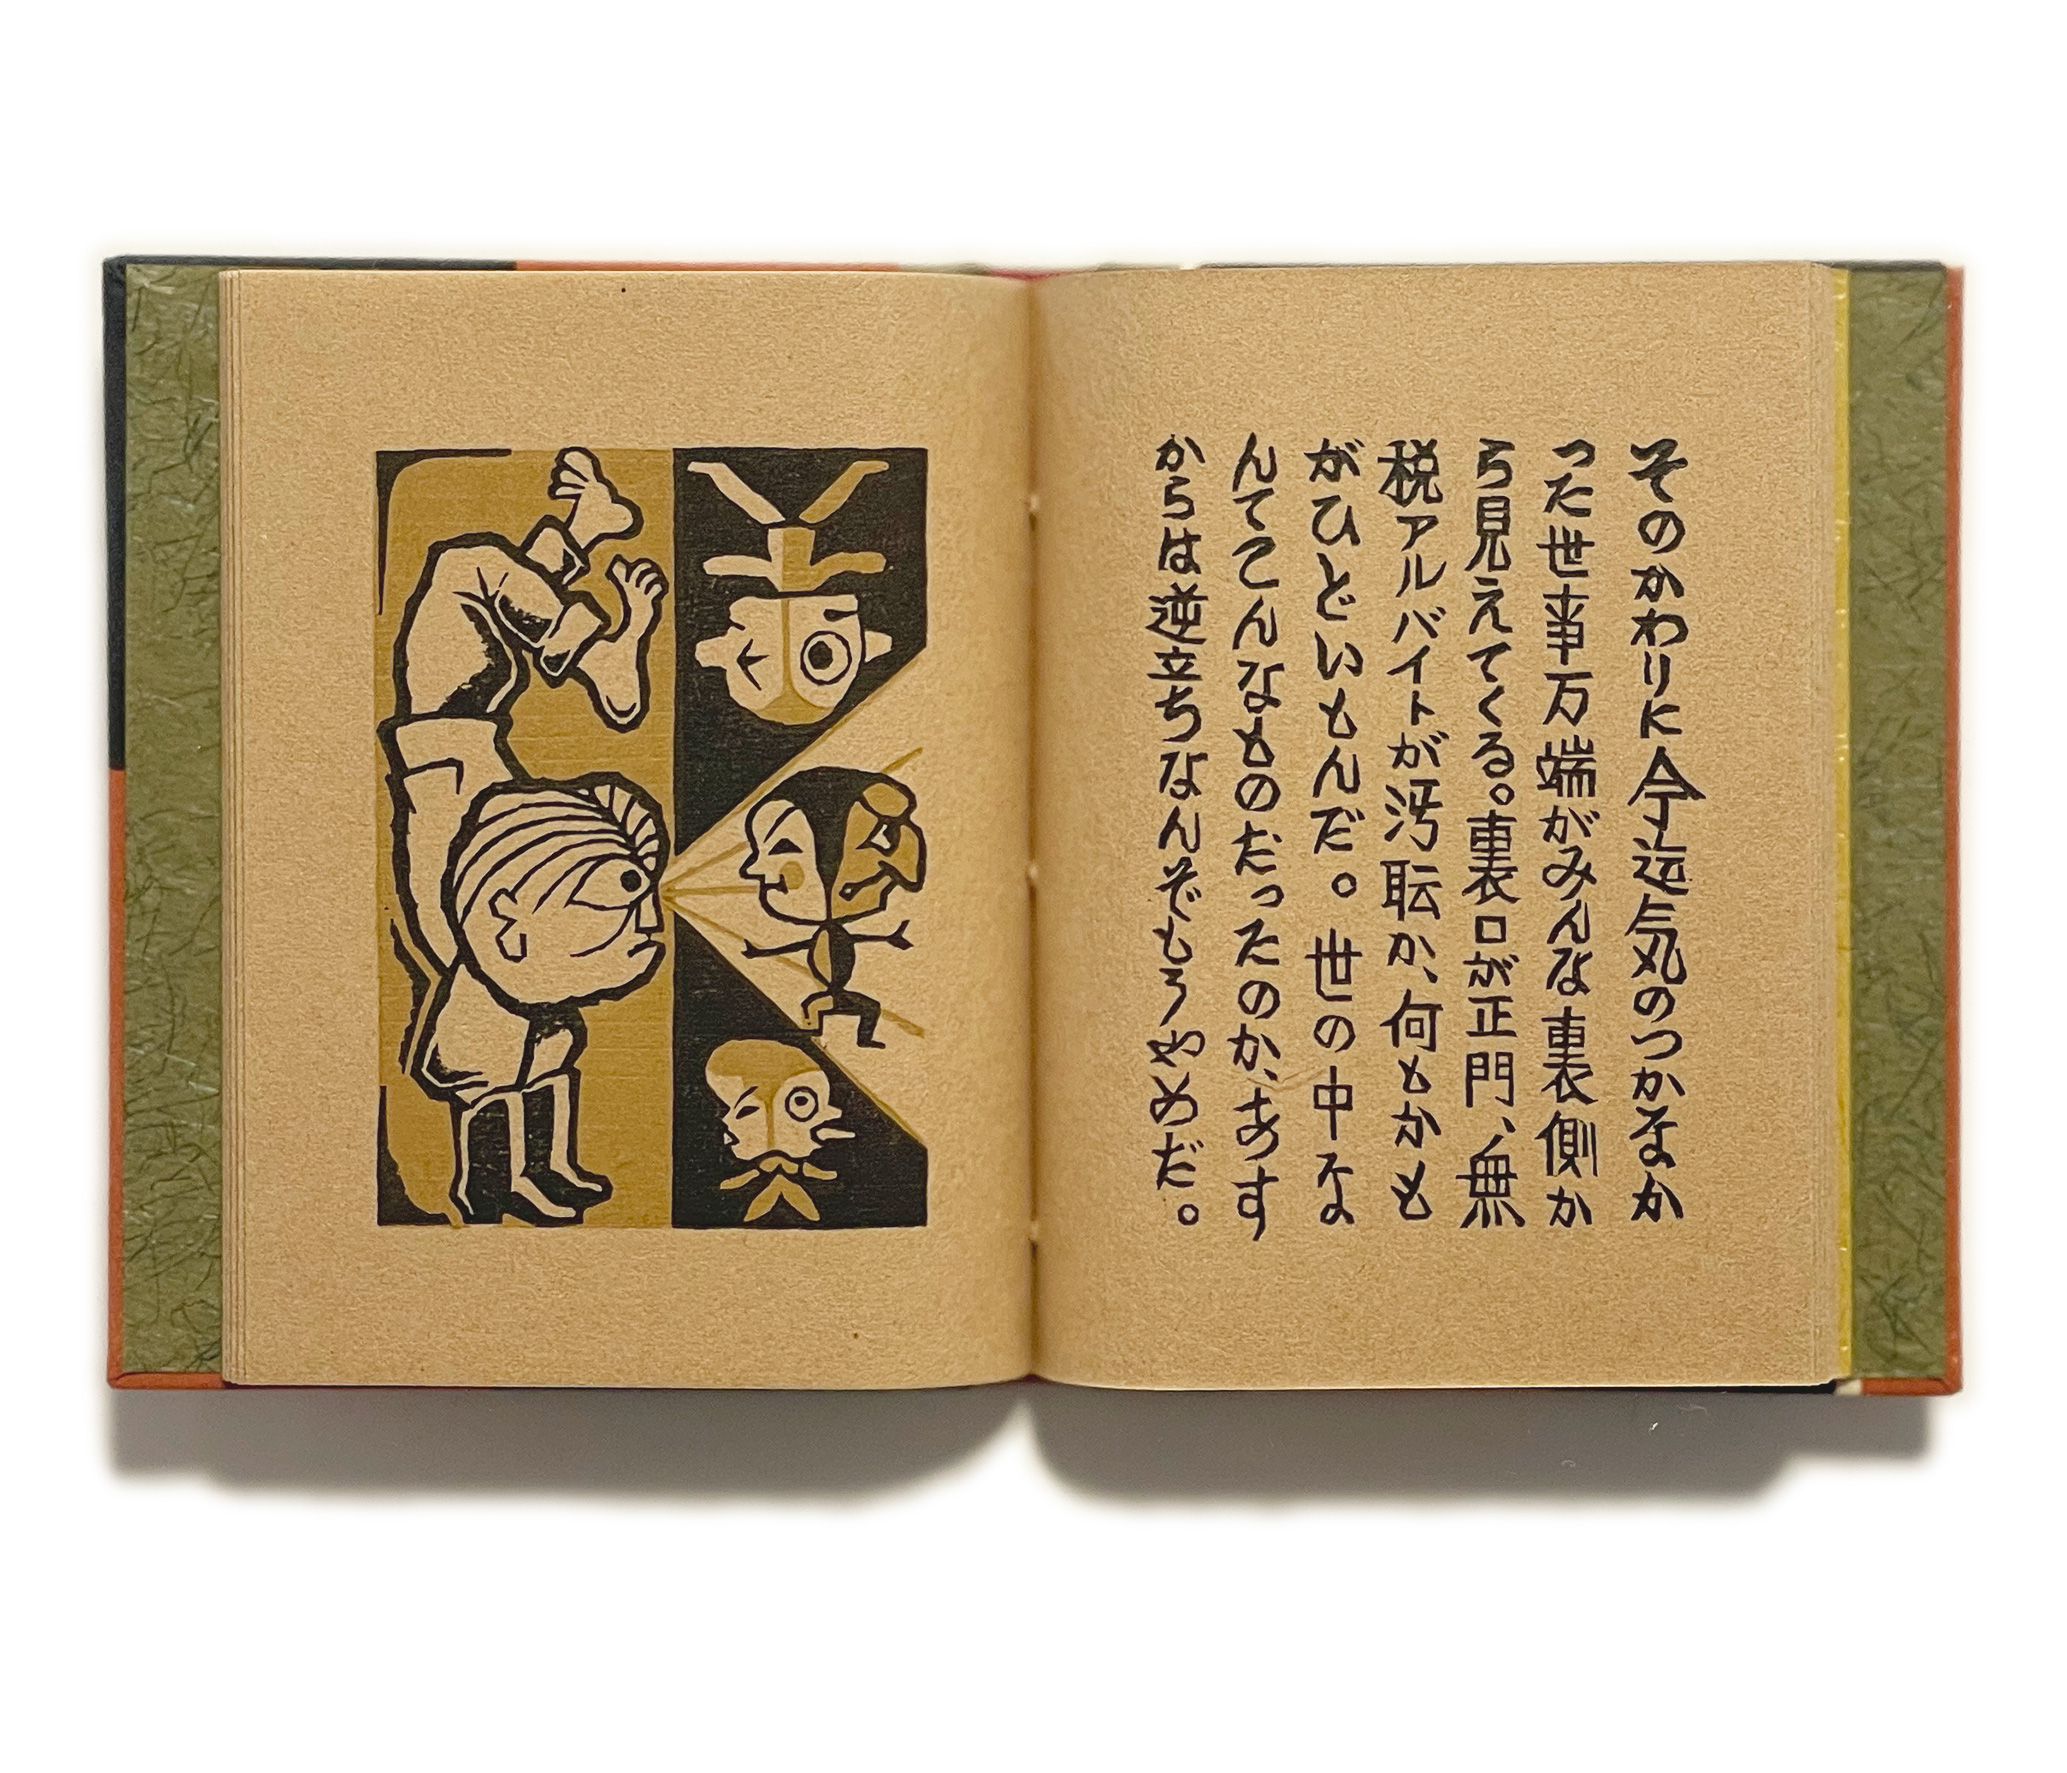 そのかわりに今迄気のつかなか
った世事万端がみんな裏側か
ら見えてくる。裏口が正門、無
税アルバイトが汚耘か、何もかも
がひどいもんだ。世の中な
んてこんなものだったのか、あす
からは逆立ちなんぞもうやめだ。